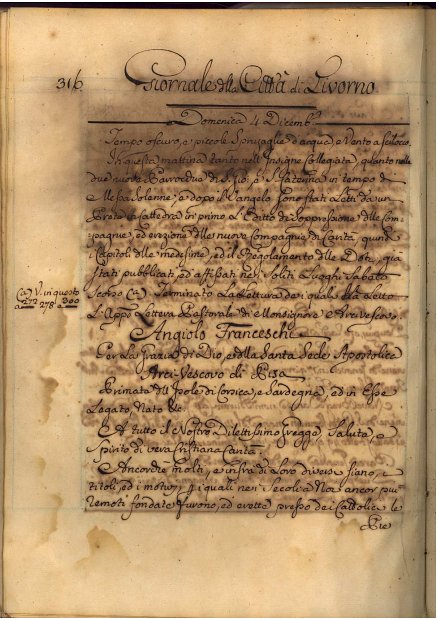 316 Giornale della Città di Livorno
Domenica 4 Dicemb.
Tempo oscuro, e piccole Spruzaglie d'acqua, e Vento a Scilocco.
In questa mattina tanto nell'Insigne Collegiata, quanto nelle
due nuove Parrocchie di S. Gio: e S. Caterina in tempo di
Messa Solenne, e dopo il Vangelo sono stati Letti da un
Prete in cattedra in primo L'Editto di Soppressione delle Com-
pagnie, ed erezione delle nuove Compagnie di Carità, quindi
i Capitoli delle medesime, ed il Regolamento delle Doti, già
stati pubblicati, ed affissati nei Soliti Luoghi Sabato
Scorso (a). Terminato La Lettura dei quali è stata Letta
(a) V. in questo
a 272 278 a 300
L'App. Lettera Pastorale di Monsignore Arcivescovo.
Angiolo Franceschi
Per La Grazia di Dio, e della Santa Sede Apostolica
Arcivescovo di Pisa
Primate dell'Isole di Corsica, e Sardegna, ed in Esse
Legato Nato &c.
A tutto il Nostro Dilettissimo Gregge Salute, e
Spirito di vera Cristiana Carità.
Ancorchè molti, e infra di Loro diversi siano, i
titoli, ed i motivi, pi quali nei Secoli a Noi ancor più
remoti fondate furono, ed erette presso dei Cattolici le
Pie